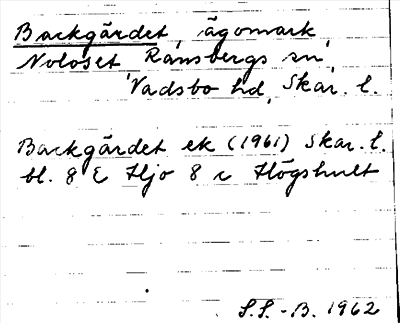 Backgärdet, ägomark,
Noloset Ransbergs sn,
Vadsbo hd, Skar. l.
Backgärdet ek (1961) Skar. l.
bl. 8 E Hjo 8 c Högshult
S.S.-B. 1962